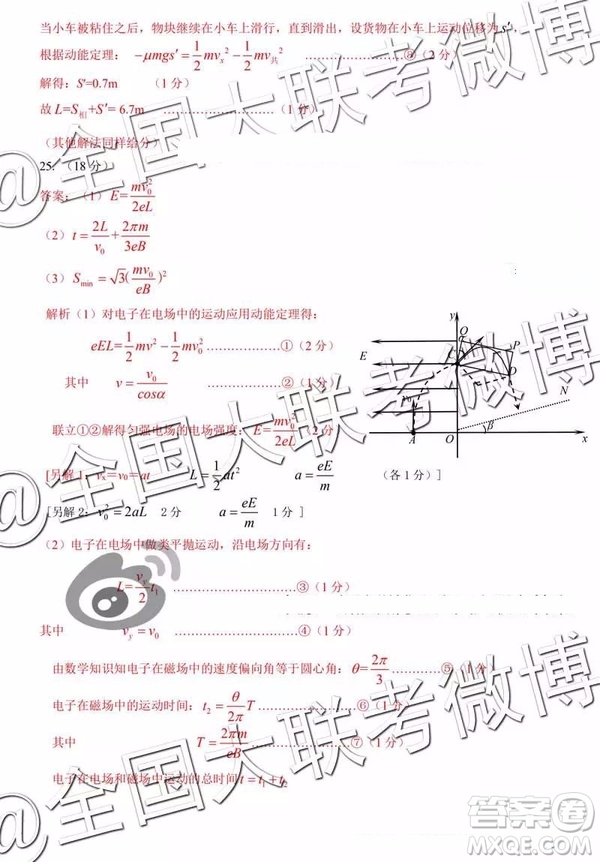 当小车被粘住之后，物块继续在小车上滑行，直到滑出，设货物在小车上运动位移为 s'，
根据动能定理： -μmgs'=1/2 mvₓ² - 1/2 mv共² …………………⑧（2分）
解得：S'=0.7m （1分）
故 L=S相+S'= 6.7m …………………（1分）
（其他解法同样给分）
25. （18分）
答案：（1）E=mv₀²/2eL
（2）t=2L/v₀+2πm/3eB
（3）Smin=√3(mv₀/eB)²
解析（1）对电子在电场中的运动应用动能定理得：
eEL=1/2 mv² - 1/2 mv₀² ……………①（2分）
其中 v=v₀/cosα ……………②（2分）
联立①②解得匀强电场的电场强度：E=mv₀²/2eL（2分
[另解1：vₓ=v₀=at L=1/2 at² a=eE/m （各1分）]
[另解2：v₀²=2aL 2分 a=eE/m 1分 ]
（2）电子在电场中做类平抛运动，沿电场方向有：
L=vᵧ/2 t₁ ……………③（1分）
其中 vᵧ=v₀ ……………④（1分）
由数学知识知电子在磁场中的速度偏向角等于圆心角：θ=2π/3 …………⑤（1分）
电子在磁场中的运动时间：t₂=θ/2π T …………⑥（1分）
其中 T=2πm/eB …………⑦（1分）
电子在电场和磁场中运动的总时间 t=t₁+t₂
y
Q
E
P
D
v₀
N
A
O
β
x
@全国大联考微博
@全国大联考微博
@全国大联考微博
答案圈
MXQE.COM